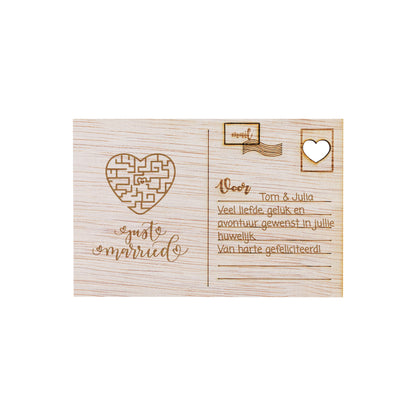 mail
Voor
Tom & Julia
Veel liefde, geluk en
avontuur gewenst in jullie
huwelijk.
Van harte gefeliciteerd!
just
married